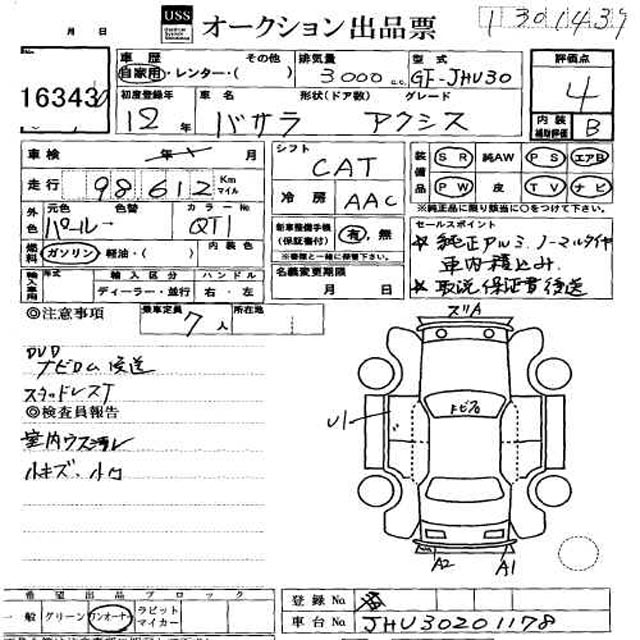 USS オークション出品票 1301439
月 日
16343
車歴 自家用・レンター・( ) その他
排気量 3000 c.c.
型式 GF-JHU30
評価点 4
初度登録年 12年
車名 バサラ
形状(ドア数) グレード アクシス
内装補助評価 B
車検 年 月
シフト CAT
装備品 SR 純AW PS エアB
PW 皮 TV ナビ
※純正品に限り該当に○をつけて下さい。
走行 98612 Km マイル
冷房 AAC
外色 元色 パール→ 色替 カラーNo QT1
新車整備手帳(保証書付) 有, 無
※書類と一緒に保管して下さい。
セールスポイント
* 純正アルミ、ノーマルタイヤ
車内積込み.
* 取説保証書後送
燃料 ガソリン・軽油・( ) 内装色
名義変更期限 月 日
輸入車用 年式 輸入区分 ハンドル
ディーラー・並行 右・左
◎注意事項
乗車定員 7人 所在地
DVD
ナビロム後送
スタッドレスT
◎検査員報告
室内ウス汚レ
小キズ、小凹
ズリA
トビ石
U1
A2 A1
希望出品ブロック
一般 グリーン ワンオーナー ラビットマイカー
登録No
車台No JHU30201178